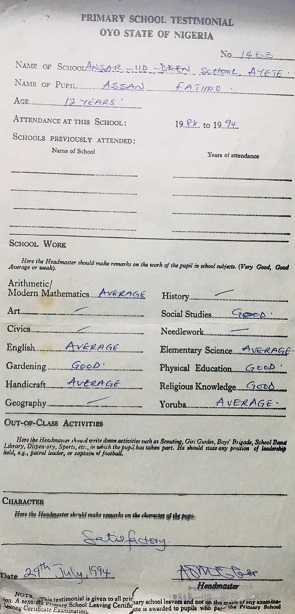 PRIMARY SCHOOL TESTIMONIAL
OYO STATE OF NIGERIA
No. 1463
NAME OF SCHOOL ANSAR-UD-DEEN SCHOOL AYETE.
NAME OF PUPIL ASSAN FATIMO.
AGE 12 YEARS.
ATTENDANCE AT THIS SCHOOL: 1988 to 1994
SCHOOLS PREVIOUSLY ATTENDED:
Name of School Years of attendance
SCHOOL WORK
Here the Headmaster should make remarks on the work of the pupil in school subjects. (Very Good, Good
Average or weak).
Arithmetic/
Modern Mathematics AVERAGE History
Art Social Studies GOOD.
Civics Needlework
English AVERAGE Elementary Science AVERAGE.
Gardening GOOD. Physical Education GOOD.
Handicraft AVERAGE Religious Knowledge GOOD
Geography Yoruba AVERAGE.
OUT-OF-CLASS ACTIVITIES
Here the Headmaster should write down activities such as Scouting, Girl Guides, Boys' Brigade, School Band
Library, Dispensary, Sports, etc., in which the pupil has taken part. He should state any position of leadership
held, e.g., patrol leader, or captain of football.
CHARACTER
Here the Headmaster should make remarks on the character of the pupil.
Satisfactory
Date 29th July, 1994
Headmaster
NOTE This testimonial is given to all primary school leavers and not on the
A separate Primary School Leaving Certificate is awarded to pupils who pass the Primary School
Leaving Certificate Examination.